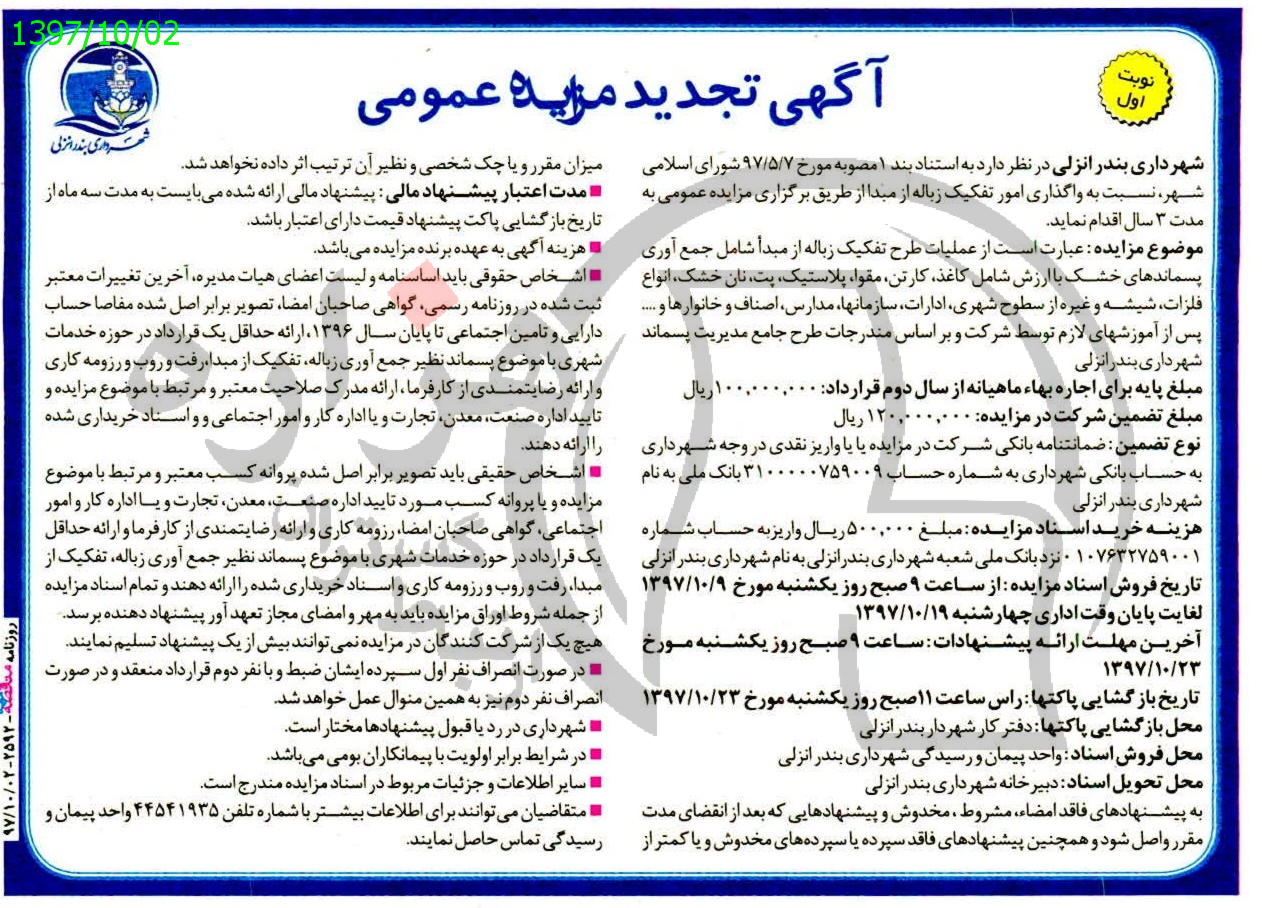 1397/10/02
نوبت
اول
آگهی تجدید مزایده عمومی
شهرداری بندرانزلی
شهرداری بندر انزلی در نظر دارد به استناد بند ۱ مصوبه مورخ ۹۷/۵/۷ شورای اسلامی
شهر، نسبت به واگذاری امور تفکیک زباله از مبدا از طریق برگزاری مزایده عمومی به
مدت ۳ سال اقدام نماید.
موضوع مزایده: عبارت است از عملیات طرح تفکیک زباله از مبدأ شامل جمع آوری
پسماندهای خشک با ارزش شامل کاغذ، کارتن، مقوا، پلاستیک، پت، نان خشک، انواع
فلزات، شیشه و غیره از سطوح شهری، ادارات، سازمانها، مدارس، اصناف و خانوارها و ....
پس از آموزشهای لازم توسط شرکت و بر اساس مندرجات طرح جامع مدیریت پسماند
شهرداری بندرانزلی
مبلغ پایه برای اجاره بهاء ماهیانه از سال دوم قرارداد: ۱۰۰,۰۰۰,۰۰۰ ریال
مبلغ تضمین شرکت در مزایده: ۱۲۰,۰۰۰,۰۰۰ ریال
نوع تضمین: ضمانتنامه بانکی شرکت در مزایده یا یا واریز نقدی در وجه شهرداری
به حساب بانکی شهرداری به شماره حساب ۳۱۰۰۰۰۰۷۵۹۰۰۹ بانک ملی به نام
شهرداری بندر انزلی
هزینه خرید اسناد مزایده: مبلغ ۵۰۰,۰۰۰ ریال واریز به حساب شماره
۰۱۰۷۶۳۲۷۵۹۰۰۱ نزد بانک ملی شعبه شهرداری بندرانزلی به نام شهرداری بندر انزلی
تاریخ فروش اسناد مزایده: از ساعت ۹ صبح روز یکشنبه مورخ ۱۳۹۷/۱۰/۹
لغایت پایان وقت اداری چهارشنبه ۱۳۹۷/۱۰/۱۹
آخرین مهلت ارائه پیشنهادات: ساعت ۹ صبح روز یکشنبه مورخ
۱۳۹۷/۱۰/۲۳
تاریخ بازگشایی پاکتها: راس ساعت ۱۱ صبح روز یکشنبه مورخ ۱۳۹۷/۱۰/۲۳
محل بازگشایی پاکتها: دفتر کار شهردار بندر انزلی
محل فروش اسناد: واحد پیمان و رسیدگی شهرداری بندر انزلی
محل تحویل اسناد: دبیرخانه شهرداری بندر انزلی
به پیشنهادهای فاقد امضاء، مشروط، مخدوش و پیشنهادهایی که بعد از انقضای مدت
مقرر واصل شود و همچنین پیشنهادهای فاقد سپرده یا سپرده‌های مخدوش و یا کمتر از
میزان مقرر و یا چک شخصی و نظیر آن ترتیب اثر داده نخواهد شد.
■ مدت اعتبار پیشنهاد مالی: پیشنهاد مالی ارائه شده می‌بایست به مدت سه ماه از
تاریخ بازگشایی پاکت پیشنهاد قیمت دارای اعتبار باشد.
■ هزینه آگهی به عهده برنده مزایده می‌باشد.
■ اشخاص حقوقی باید اساسنامه و لیست اعضای هیات مدیره، آخرین تغییرات معتبر
ثبت شده در روزنامه رسمی، گواهی صاحبان امضا، تصویر برابر اصل شده مفاصا حساب
دارایی و تامین اجتماعی تا پایان سال ۱۳۹۶، ارائه حداقل یک قرارداد در حوزه خدمات
شهری با موضوع پسماند نظیر جمع آوری زباله، تفکیک از مبدا، رفت و روب و رزومه کاری
و ارائه رضایتمندی از کارفرما، ارائه مدرک صلاحیت معتبر و مرتبط با موضوع مزایده و
تایید اداره صنعت، معدن، تجارت و یا اداره کار و امور اجتماعی و و اسناد خریداری شده
را ارائه دهند.
■ اشخاص حقیقی باید تصویر برابر اصل شده پروانه کسب معتبر و مرتبط با موضوع
مزایده و یا پروانه کسب مورد تایید اداره صنعت، معدن، تجارت و یا اداره کار و امور
اجتماعی، گواهی صاحبان امضا، رزومه کاری و ارائه رضایتمندی از کارفرما و ارائه حداقل
یک قرارداد در حوزه خدمات شهری با موضوع پسماند نظیر جمع آوری زباله، تفکیک از
مبدا، رفت و روب و رزومه کاری و اسناد خریداری شده را ارائه دهند و تمام اسناد مزایده
از جمله شروط اوراق مزایده باید به مهر و امضای مجاز تعهد آور پیشنهاد دهنده برسد.
هیچ یک از شرکت کنندگان در مزایده نمی‌توانند بیش از یک پیشنهاد تسلیم نمایند.
■ در صورت انصراف نفر اول سپرده ایشان ضبط و با نفر دوم قرارداد منعقد و در صورت
انصراف نفر دوم نیز به همین منوال عمل خواهد شد.
■ شهرداری در رد یا قبول پیشنهادها مختار است.
■ در شرایط برابر اولویت با پیمانکاران بومی می‌باشد.
■ سایر اطلاعات و جزئیات مربوط در اسناد مزایده مندرج است.
■ متقاضیان می‌توانند برای اطلاعات بیشتر با شماره تلفن ۴۴۵۴۱۹۳۵ واحد پیمان و
رسیدگی تماس حاصل نمایند.
روزنامه مناقصه - ۲۵۹۲ - ۹۷/۱۰/۰۲